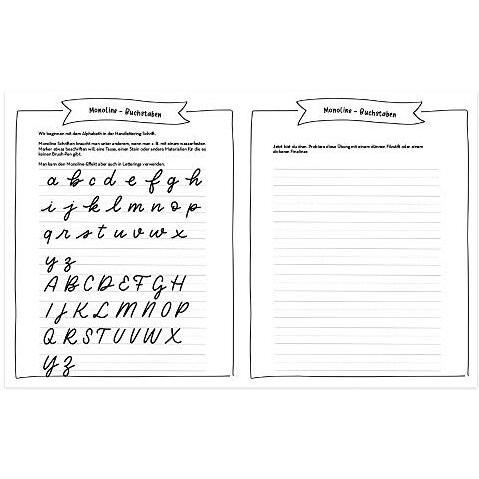 Monoline - Buchstaben
Wir beginnen mit dem Alphabeth in der Handlettering Schrift.
Monoline Schriften braucht man unter anderem, wenn man z. B. mit einem wasserfesten
Marker etwas beschriften will, eine Tasse, einen Stein oder andere Materialien für die es
keinen Brush Pen gibt.
Man kann den Monoline-Effekt aber auch in Letterings verwenden.
a b c d e f g h
i j k l m n o p
q r s t u v w x
y z
A B C D E F G H
I J K L M N O P
Q R S T U V W X
Y Z
Monoline - Buchstaben
Jetzt bist du dran. Probiere diese Übung mit einem dünnen Filzstift oder einem
dickeren Fineliner.